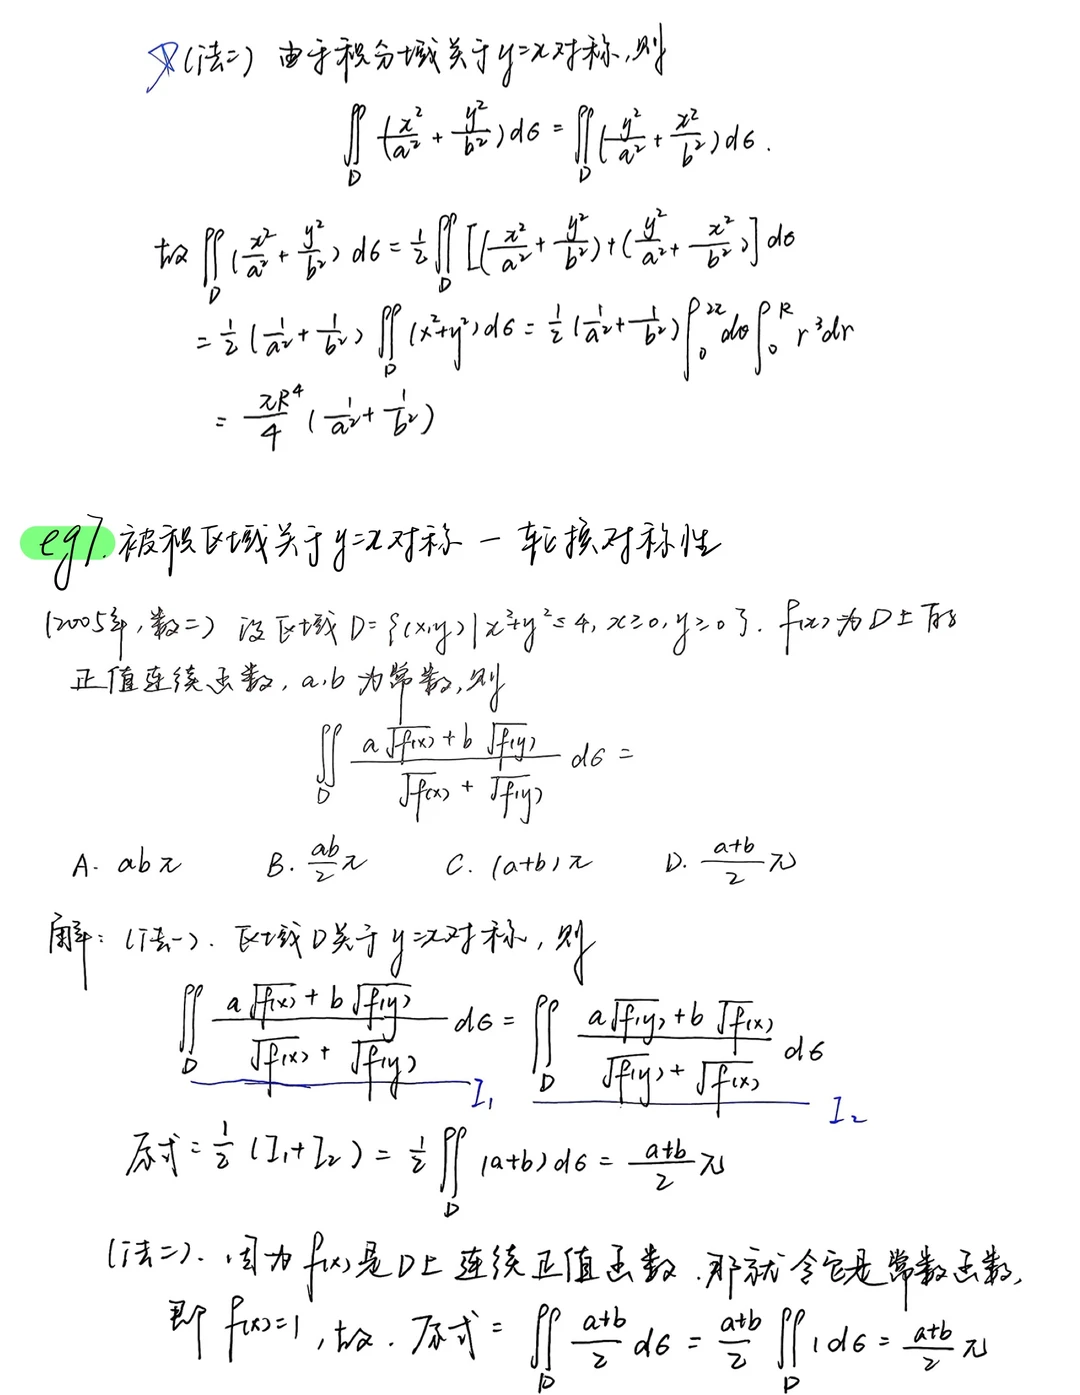 (法二) 由于积分域关于y=x对称,则
∬_D (x²/a² + y²/b²)dσ = ∬_D (y²/a² + x²/b²)dσ.
故 ∬_D (x²/a² + y²/b²) dσ = 1/2 ∬_D [(x²/a² + y²/b²)+(y²/a² + x²/b²)] dσ
= 1/2 (1/a² + 1/b²) ∬_D (x²+y²)dσ = 1/2 (1/a² + 1/b²) ∫_0^{2π} dθ ∫_0^R r³dr
= πR⁴/4 (1/a² + 1/b²)
eg7. 被积区域关于y=x对称 — 轮换对称性
(2005年,数二) 设区域 D={(x,y) | x²+y²≤4, x≥0, y≥0}. f(x) 为D上的
正值连续函数, a,b 为常数,则
∬_D (a√f(x) + b√f(y))/(√f(x) + √f(y)) dσ =
A. abπ B. ab/2 π C. (a+b)π D. (a+b)/2 π
解: (法一). 区域D关于y=x对称,则
∬_D (a√f(x) + b√f(y))/(√f(x) + √f(y)) dσ = ∬_D (a√f(y) + b√f(x))/(√f(y) + √f(x)) dσ
I₁ I₂
原式 = 1/2 (I₁+I₂) = 1/2 ∬_D (a+b)dσ = (a+b)/2 π
(法二). 因为 f(x)是D上连续正值函数.那就令它是常数函数,
即 f(x)=1,故. 原式 = ∬_D (a+b)/2 dσ = (a+b)/2 ∬_D 1dσ = (a+b)/2 π